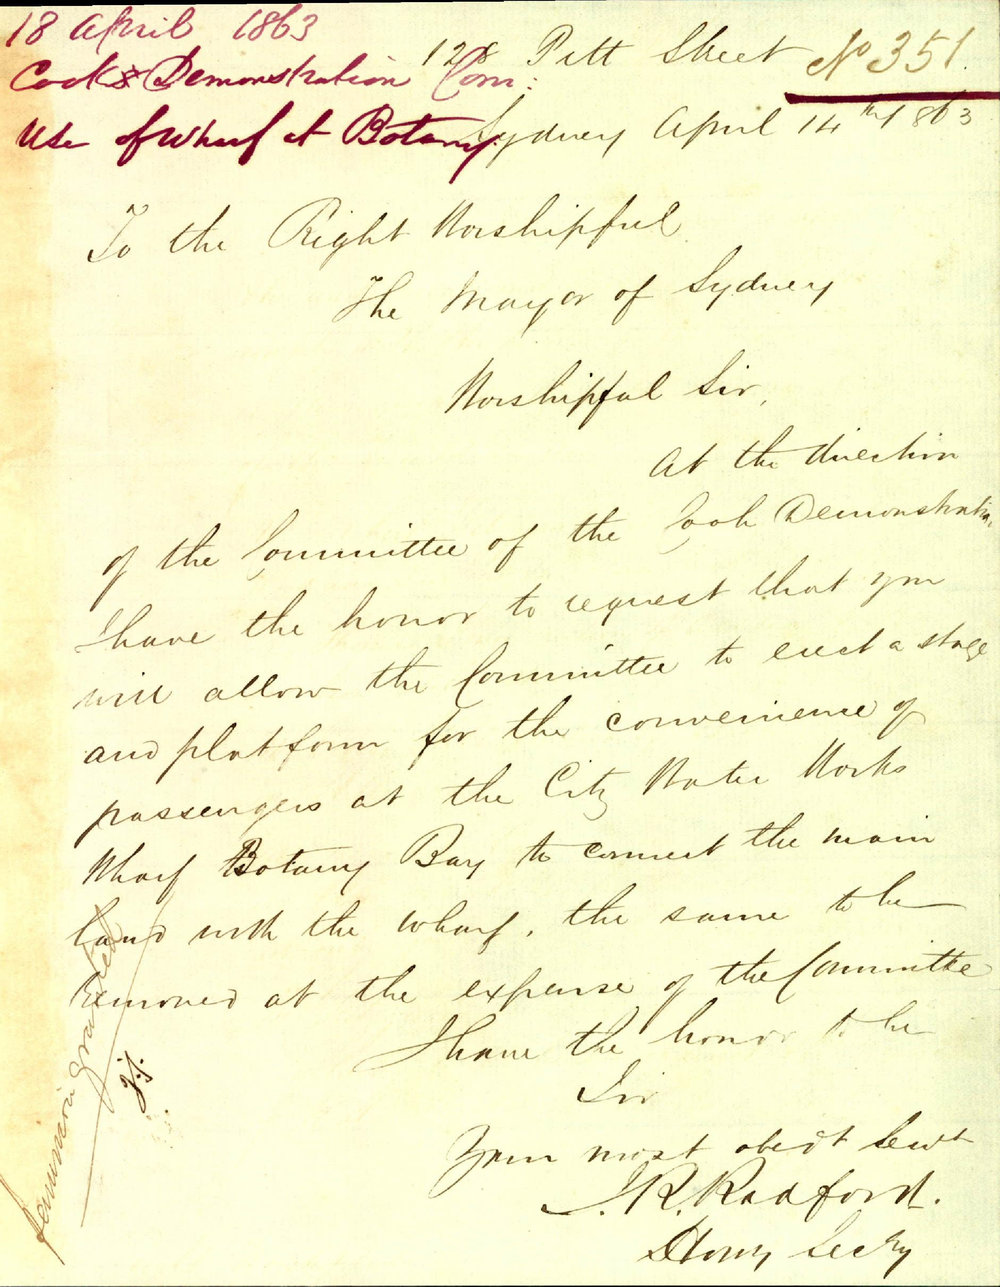 18 April 1863
Cook's Demonstration Com:
Use of Wharf at Botany.
No 351.
128 Pitt Street
Sydney April 14th 1863
To the Right Worshipful
The Mayor of Sydney
Worshipful Sir,
At the direction
of the Committee of the Cook Demonstration
I have the honor to request that you
will allow the Committee to erect a stage
and platform for the convenience of
passengers at the City Water Works
Wharf Botany Bay to connect the main
land with the wharf, the same to be
removed at the expense of the Committee
I have the honor to be
Sir
Your most obedt Servt
J. R. Radford.
Hony Secty
Permission granted
J.S.